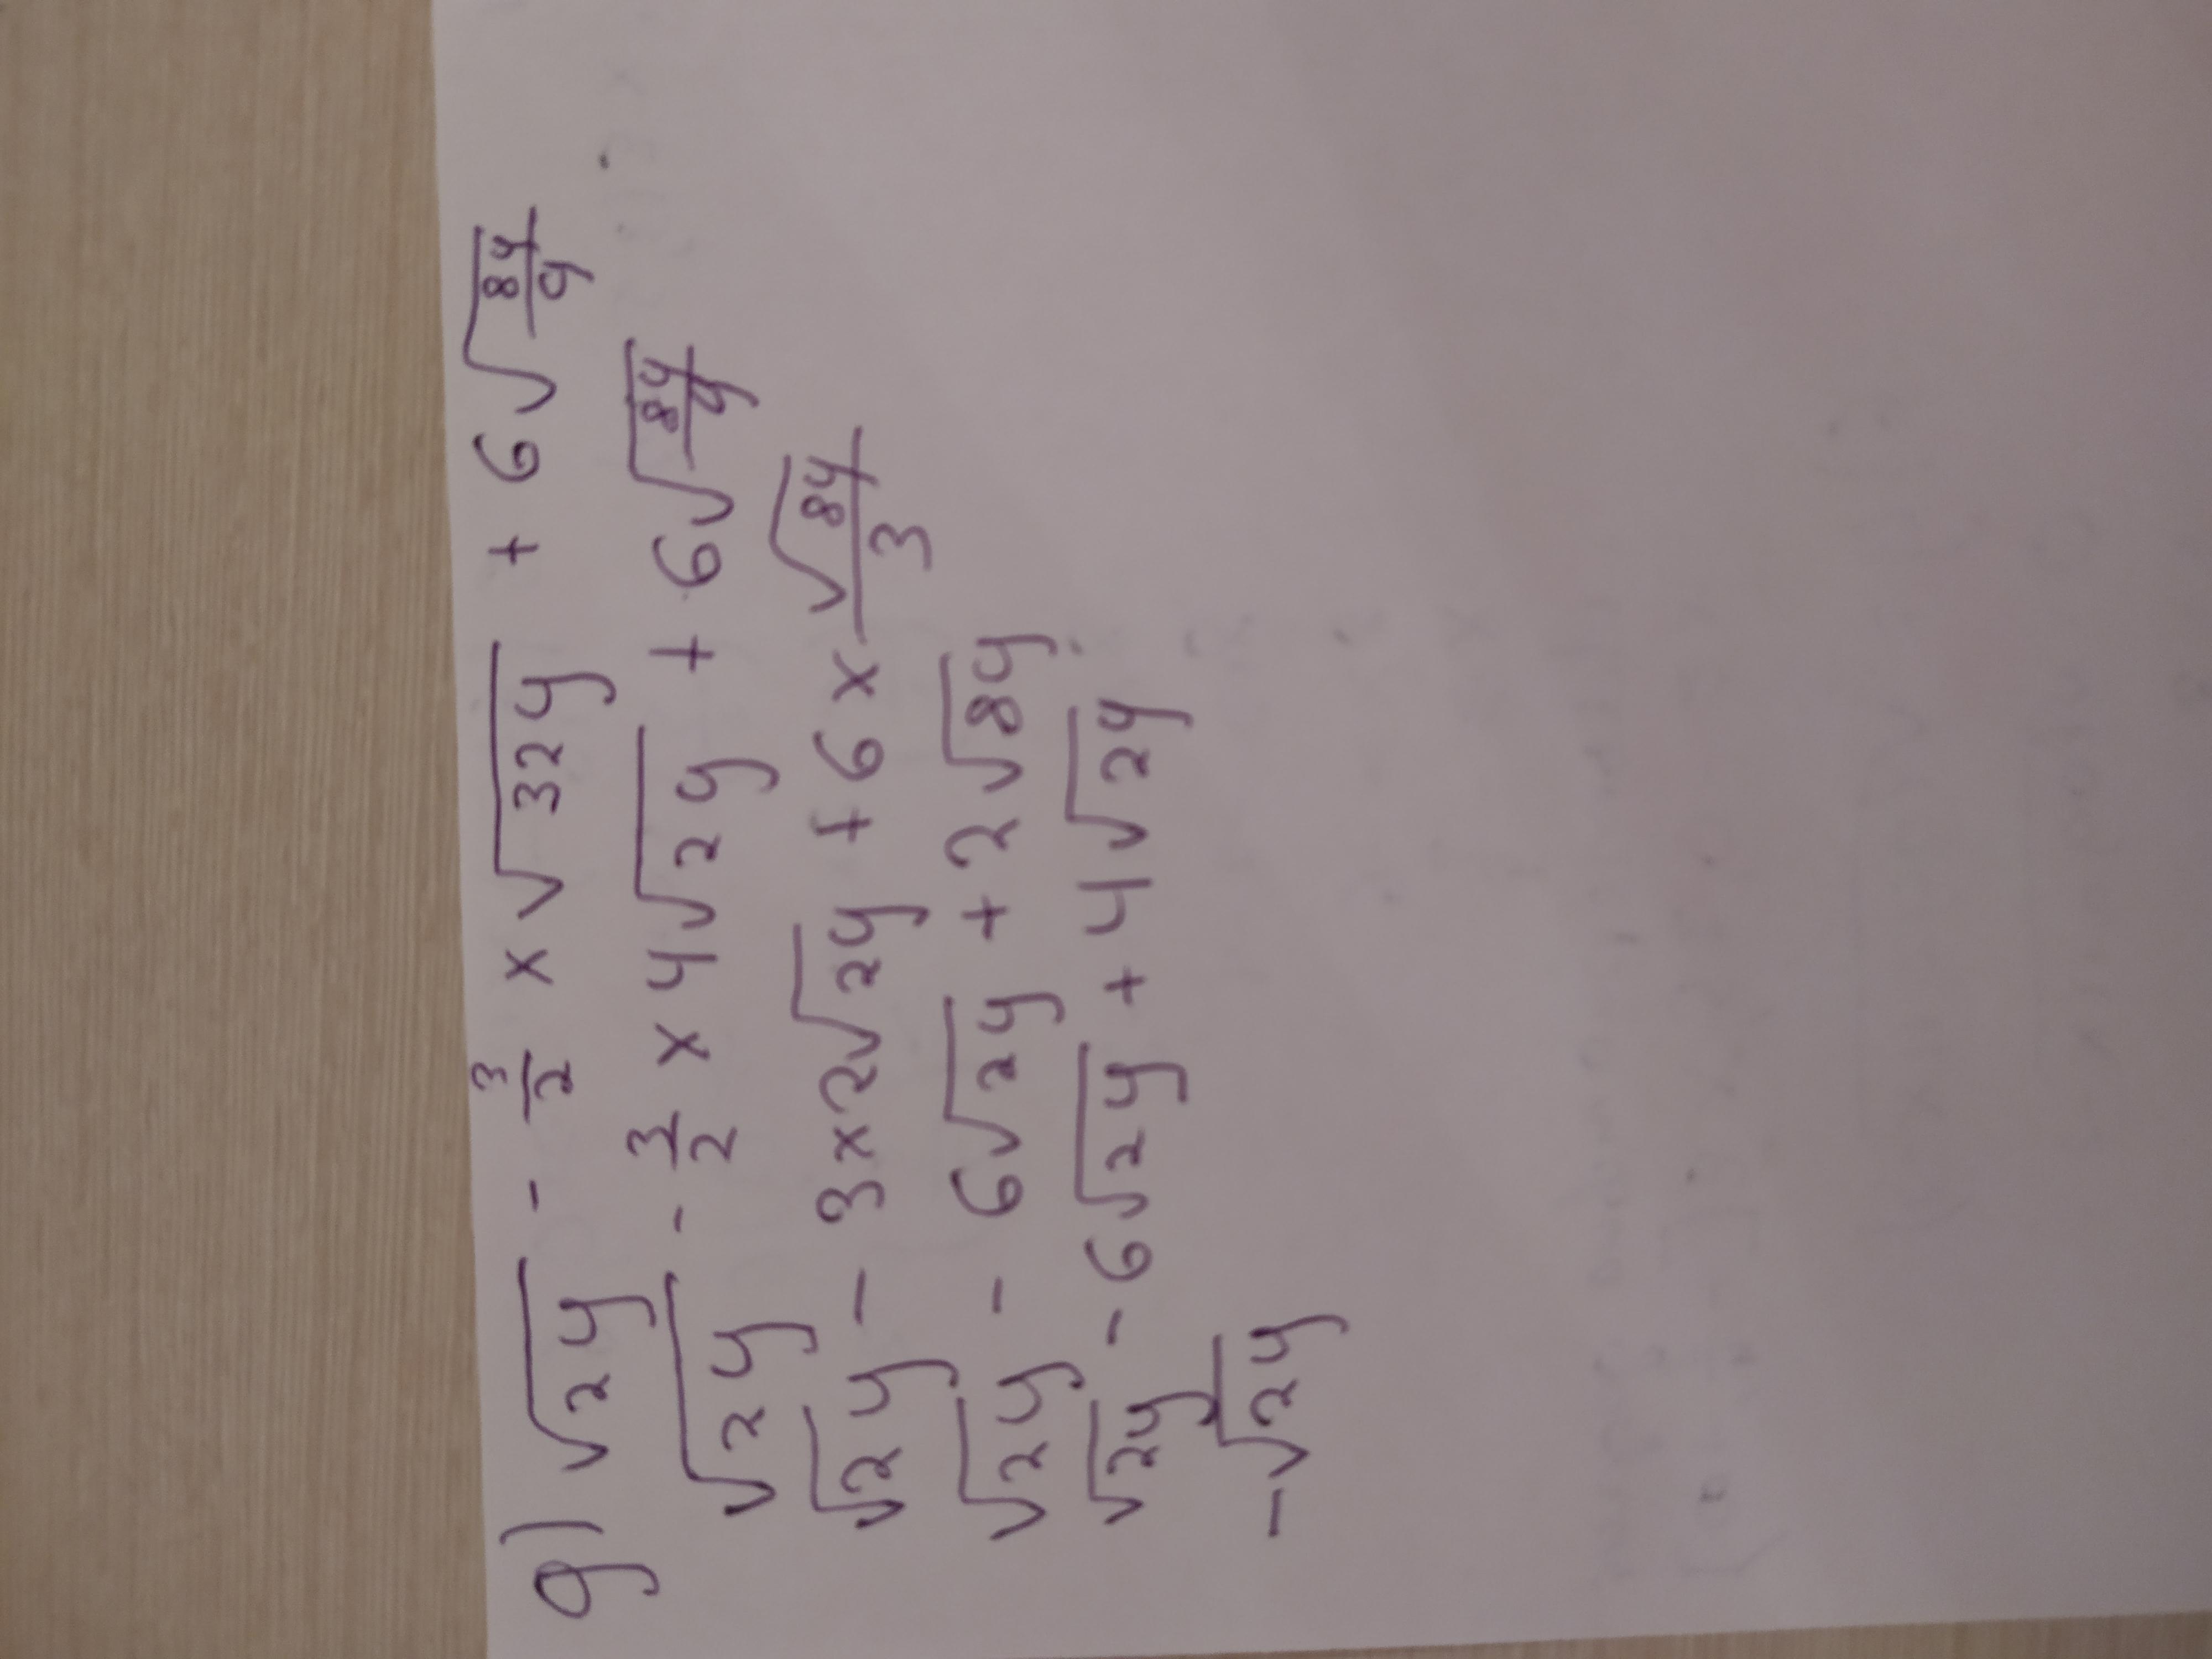 9) √2y - 3/2 x √32y + 6√8y/9
√2y - 3/2 x 4√2y + 6√8y/9
√2y - 3x2√2y + 6x √8y/3
√2y - 6√2y + 2√8y
√2y - 6√2y + 4√2y
-√2y